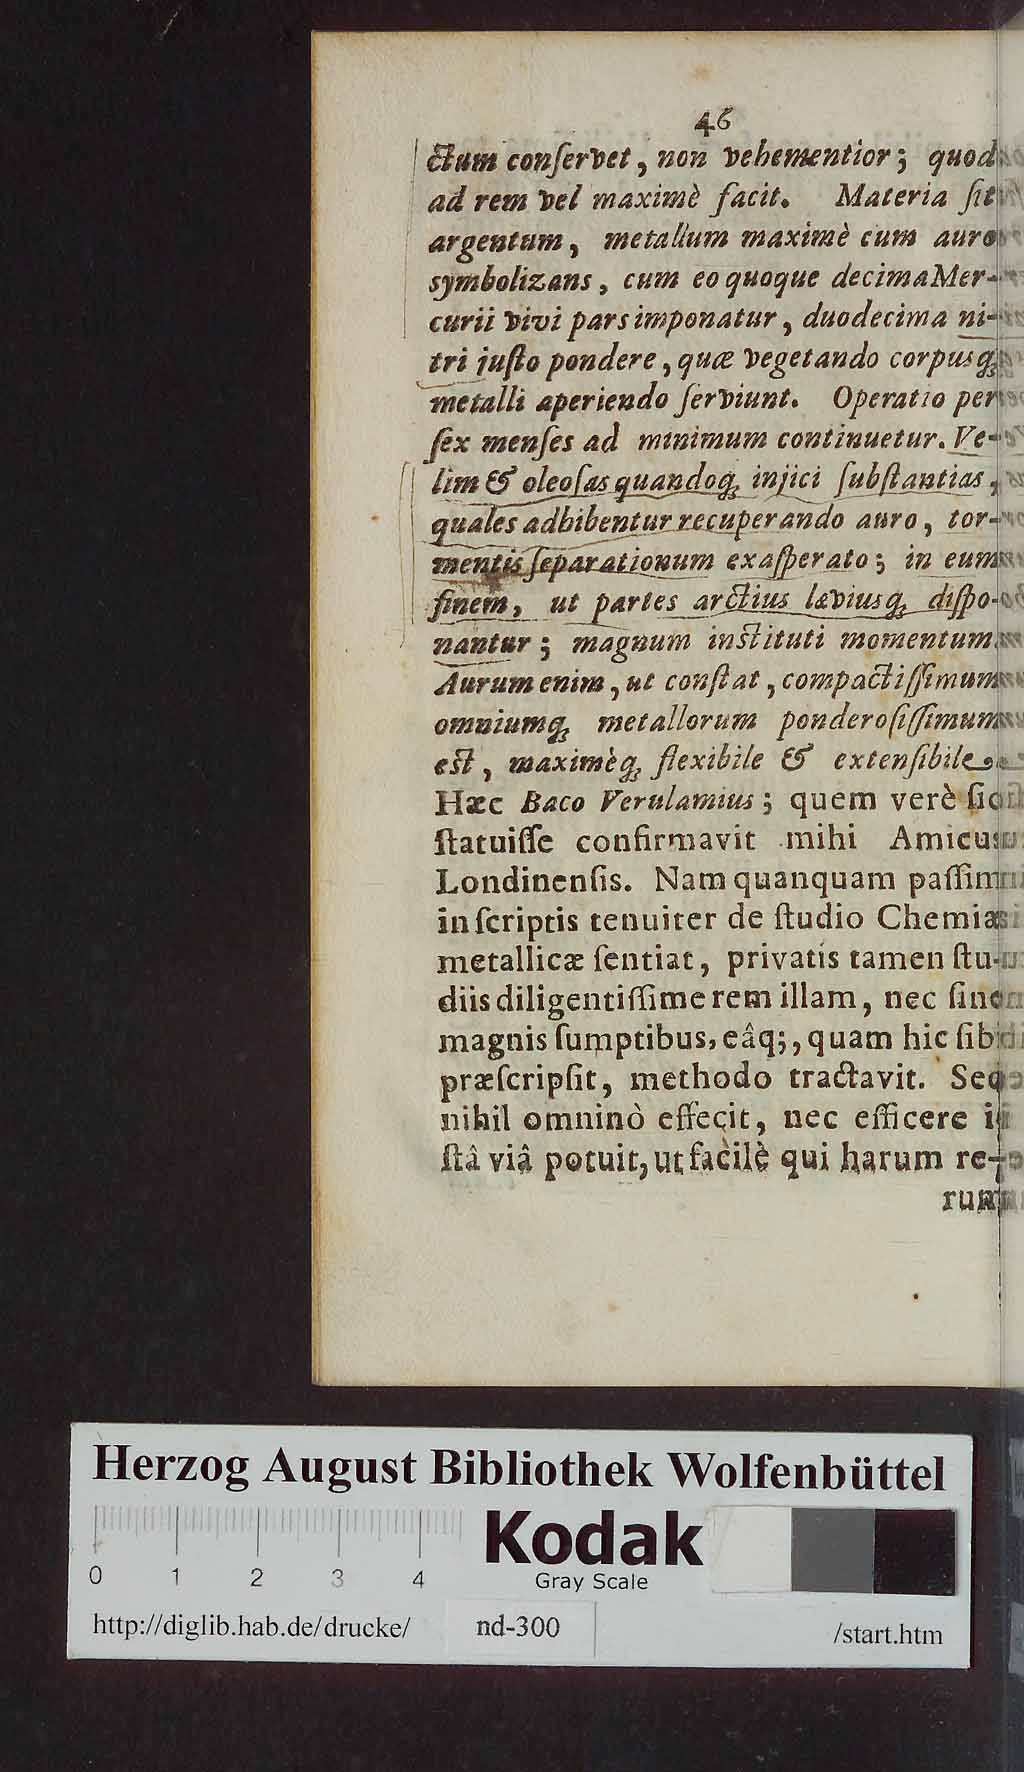 46
ctum conſervet, non vehementior; quod
ad rem vel maximè facit. Materia ſit
argentum, metallum maximè cum auro
symbolizans, cum eo quoque decima Mer-
curii vivi pars imponatur, duodecima ni-
tri juſto pondere, quæ vegetando corpusq́;
metalli aperiendo ſerviunt. Operatio per
ſex menſes ad minimum continuetur. Ve-
lim & oleoſas quandoq́; injici ſubſtantias,
quales adhibentur recuperando auro, tor-
mentis ſeparationum exaſperato; in eum
finem, ut partes arctius læviusq́; diſpo-
nantur; magnum inſtituti momentum.
Aurum enim, ut conſtat, compactiſſimum
omniumq́; metallorum ponderoſiſſimum
eſt, maximèq́; flexibile & extenſibile.
Hæc Baco Verulamius; quem verè ſic
ſtatuiſſe confirmavit mihi Amicus
Londinenſis. Nam quanquam paſſim
in ſcriptis tenuiter de ſtudio Chemiæ
metallicæ ſentiat, privatis tamen ſtu-
diis diligentiſſime rem illam, nec ſine
magnis ſumptibus, eâq;, quam hic ſibi
præſcripſit, methodo tractavit. Sed
nihil omninò effecit, nec efficere i-
ſtâ viâ potuit, ut facilè qui harum re-
rum
Herzog August Bibliothek Wolfenbüttel
0 1 2 3 4
Kodak
Gray Scale
http://diglib.hab.de/drucke/ nd-300 /start.htm